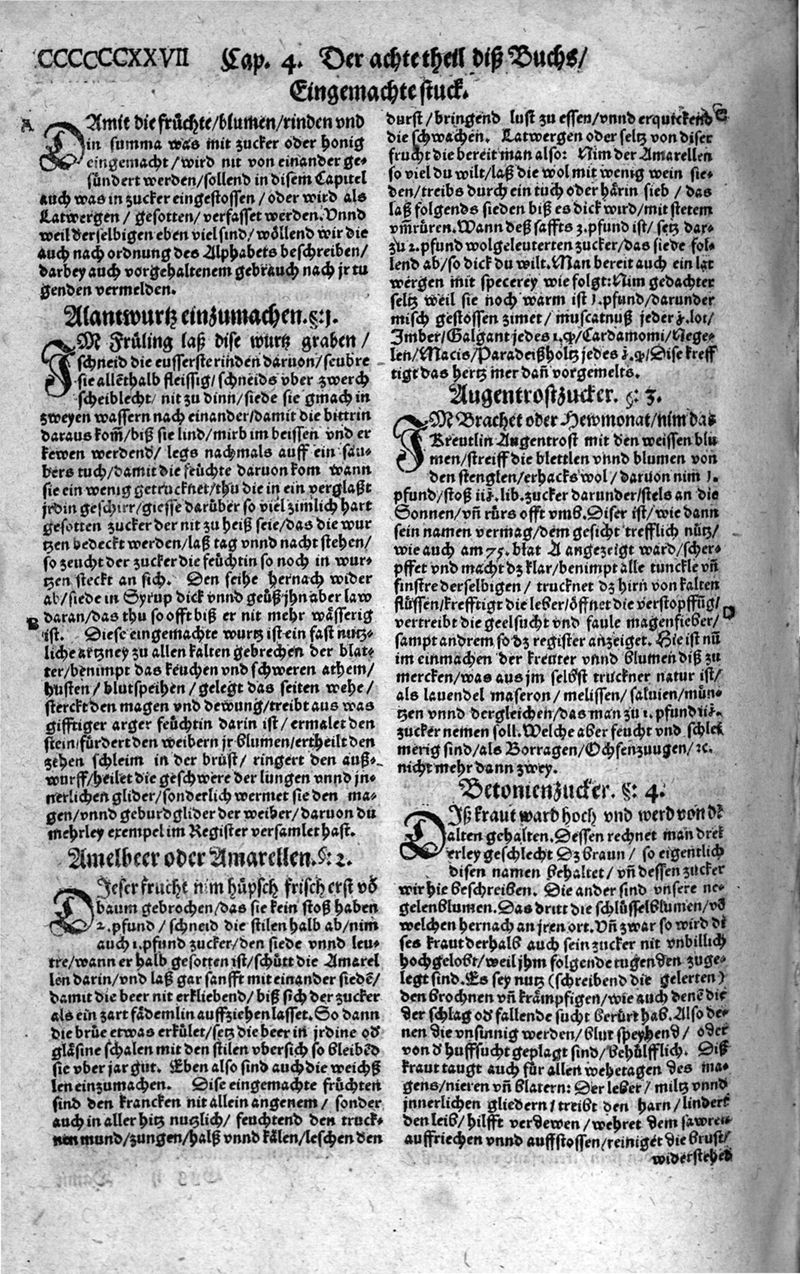 CCCCCCCXXVII Cap. 4. Der achte theil diß Buchs/
Eingemachte stuck.
A
DAmit die früchte/blumen/rinden vnd
in summa was mit zucker oder honig
eingemacht/wird nit von einander ge-
sündert werden/sollend in disem Capitel
auch was in zucker eingestossen/oder wird als
Latwergen/gesotten/verfasset werden. Vnnd
weil derselbigen eben viel sind/wöllend wir die
auch nach ordnung des Alphabets beschreiben/
darbey auch vorgehaltenem gebrauch nach jr tu
genden vermelden.
Alantwurtz einzumachen. §: 1.
IM Früling laß dise wurtz graben/
schneid die eusserste rinden daruon/seubre
sie allēthalb fleissig/schneids vber zwerch
scheiblecht/nit zu dinn/siede sie gmach in
zweyen wassern nach einander/damit die bittrin
daraus kom̄/biß sie lind/mirb im beissen vnd er
kewen werdend/legs nachmals auff ein sau-
bers tuch/damit die feüchte daruon kom wann
sie ein wenig getrucknet/thu die in ein verglaßt
jrdin geschirr/giesse darüber so viel zimlich hart
gesotten zucker der nit zu heiß seie/das die wur
tzen bedeckt werden/laß tag vnnd nacht stehen/
so zeucht der zucker die feüchtin so noch in wur-
tzen steckt an sich. Den seihe hernach wider
ab/siede in Syrup dick vnnd geüß jhn aber law
daran/das thu so offt biß er nit mehr wässerig
B
ist. Diese eingemachte wurtz ist ein fast nutz-
liche artzney zu allen kalten gebrechen der blat-
ter/benimpt das keuchen vnd schweren athem/
husten/blutspeihen/gelegt das seiten wehe/
sterckt den magen vnd dewung/treibt aus was
gifftiger arger feüchtin darin ist/ermalet den
stein/fürdert den weibern jr blumen/ertheilt den
zehen schleim in der brüst/ringert den auß-
wurff/heilet die geschwere der lungen vnnd jn-
nerlichen glider/sonderlich wermet sie den ma-
gen/vnnd geburdglider der weiber/daruon du
mehrley exempel im Register versamlet hast.
Amelbeer oder Amarellen. §: 2.
DIeser frucht nim hüpsch frisch erst vō
baum gebrochen/das sie kein stoß haben
2. pfund/schneid die stilen halb ab/nim
auch 1. pfund zucker/den siede vnnd leu-
tre/wann er halb gesotten ist/schütt die Amarel
len darin/vnd laß gar sanfft mit einander siedē/
damit die beer nit erkliebend/biß sich der zucker
als ein zart fädemlin auffziehen lasset. So dann
die brüe etwas erkület/setz die beer in jrdine od
gläsine schalen mit den stilen vbersich so bleibēd
sie vber jar gut. Eben also sind auch die weichß
len einzumachen. Dise eingemachte früchten
sind den krancken nit allein angenem/sonder
auch in aller hitz nutzlich/feuchtend den truck-
nen mund/zungen/halß vnnd kälen/leschen den
durst/bringend lust zu essen/vnnd erquickend C
die schwachen. Latwergen oder seltz von diser
frucht die bereit man also: Nim der Amarellen
so viel du wilt/laß die wol mit wenig wein sie-
den/treibs durch ein tuch oder härin sieb/das
laß folgends sieden biß es dick wird/mit stetem
vm̄rüren. Wann deß saffts 3. pfund ist/setz dar-
zu 2. pfund wolgeleuterten zucker/das siede fol-
lend ab/so dick du wilt. Man bereit auch ein lat
wergen mit specerey wie folgt: Nim gedachter
seltz weil sie noch warm ist 1. pfund/darunder
misch gestossen zimet/muscatnuß jeder lot/
Imber/Galgant jedes 1. q/Cardamomi/Nege-
len/Macis/Paradeißholtz jedes q/Dise kreff
tigt das hertz mer dan̄ vorgemelts.
Augentrostzucker. §: 3.
IM Brachet oder Hewmonat/nim das
Kreutlin Augentrost mit den weissen blu
men/streiff die blettlen vnnd blumen von
den stenglen/erhacks wol/daruon nim 1.
pfund/stoß iij. lib. zucker darunder/stels an die
Sonnen/vn̄ rürs offt vmb. Diser ist/wie dann
sein namen vermag/dem gesicht trefflich nütz/
wie auch am 75. blat A angezeigt ward/scher-
pffet vnd macht dz klar/benimpt alle tunckle vn̄
finstre derselbigen/trucknet dz hirn̄ von kalten
flüssen/krefftigt die leber/öffnet die verstopffūg/
vertreibt die geelsucht vnd faule magenfieber/ D
sampt andrem so dz register anzeiget. Hie ist nun
im einmachen der kreuter vnnd blumen diß zu
mercken/was aus jm selbst truckner natur ist/
als lauendel maseron/melissen/saluien/mün-
tzen vnnd dergleichen/das man zu 1. pfund iij.
zucker nemen soll. Welche aber feucht vnd schlei
merig sind/als Borragen/Ochsenzungen/ꝛc.
nicht mehr dann zwey.
Betonienzucker. §: 4.
DIß kraut ward hoch vnd werd von dē
alten gehalten. Dessen rechnet man drei
erley geschlecht Dz braun/so eigentlich
disen namen behaltet/vn̄ dessen zucker
wir hie beschreiben. Die ander sind vnsere ne-
gelenblumen. Das dritt die schlüsselblumen/vō
welchen hernach an jren ort. Vn̄ zwar so wird di
ses kraut derhalb auch sein zucker nit vnbillich
hochgelobt/weil jhm folgende tugenden zuge-
legt sind. Es sey nutz (schreibend die gelerten)
den brochnen vn̄ krämpfigen/wie auch denē die
der schlag od fallende sucht berürt hab. Also de-
nen die vnsinnig werden/blut speyhend/oder
von d huffsucht geplagt sind/behülfflich. Diß
kraut taugt auch für allen wehetagen des ma-
gens/nieren vn̄ blatern: Der leber/miltz vnnd
jnnerlichen gliedern/treibt den harn/lindert
den leib/hilfft verdewen/wehret dem sawren
auffriechen vnnd auffstossen/reiniget die brust/
widerstehed